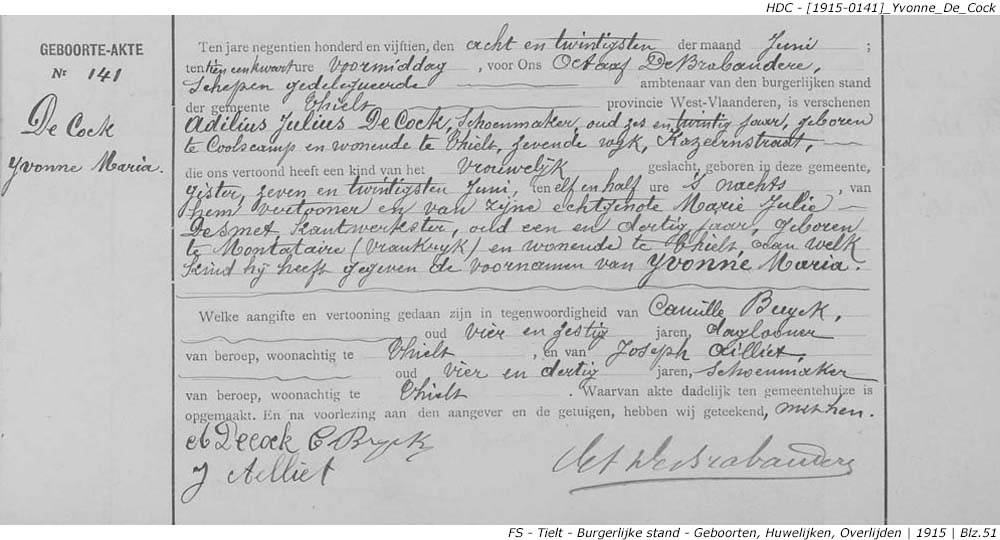 HDC - [1915-0141]_Yvonne_De_Cock
GEBOORTE-AKTE
Nr 141
De Cock
Yvonne Maria.
Ten jare negentien honderd en vijftien, den acht en twintigsten der maand Juni ;
ten tien een kwart ure voormiddag , voor Ons Octaaf De Brabandere,
Schepen gedelegueerde ambtenaar van den burgerlijken stand
der gemeente Thielt provincie West-Vlaanderen, is verschenen
Adilius Julius De Cock, Schoenmaker, oud zes en twintig jaar, geboren
te Coolscamp en wonende te Thielt, zevende wijk, Kazeernstraat,
die ons vertoond heeft een kind van het vrouwelijk geslacht, geboren in deze gemeente,
gister, zeven en twintigsten Juni, ten elf en half ure 's nachts , van
hem vertooner en van zijne echtgenote Marie Julie
Desmet, Kantwerkster, oud een en dertig jaar, geboren
te Montataire (Vrankrijk) en wonende te Thielt, aan welk
kind hij heeft gegeven de voornamen van Yvonne Maria.
Welke aangifte en vertooning gedaan zijn in tegenwoordigheid van Camille Buyck,
oud vier en zestig jaren, daglooner
van beroep, woonachtig te Thielt , en van Joseph Ailliet,
oud vier en dertig jaren, Schoenmaker
van beroep, woonachtig te Thielt . Waarvan akte dadelijk ten gemeentehuize is
opgemaakt. En na voorlezing aan den aangever en de getuigen, hebben wij geteekend, met hen.
A Decock C Buyck
J Ailliet Oct De Brabandere
FS - Tielt - Burgerlijke stand - Geboorten, Huwelijken, Overlijden | 1915 | Blz.51